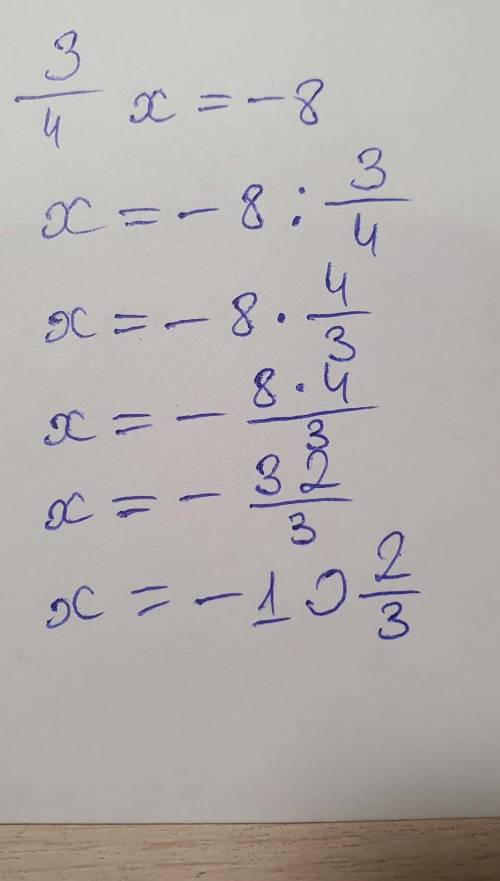 3/4 x = -8
x = -8 : 3/4
x = -8 · 4/3
x = - 8 · 4/3
x = - 32/3
x = -10 2/3